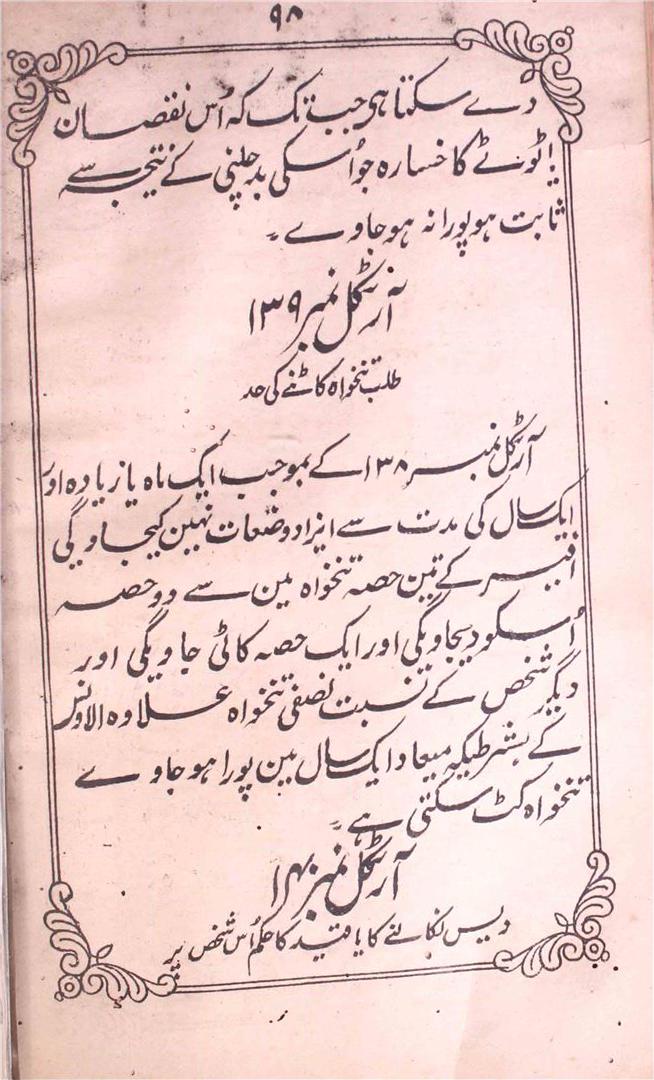 ۹۸
دے سکتا ہی جب تک کہ اُس نقصان
یا ٹوٹے کا خسارہ جو اُسکی بد چلنی کے نتیجہ سے
ثابت ہو پورا نہ ہو جاوے ۔
آرٹکل نمبر ۱۳۹
طلب تنخواہ کاٹنے کی حد
آرٹکل نمبر ۱۳۸ کے بموجب ایک ماہ یا زیادہ اور
ایک سال کی مدت سے ایزاد وضعات نہین کیجاویگی
افیسر کے تین حصہ تنخواہ مین سے دو حصہ
اُسکو دیجاویگی اور ایک حصہ کاٹی جاویگی اور
دیگر شخص کے نسبت نصفی تنخواہ علاوہ الاونس
کے بشرطیکہ میعاد ایک سال مین پورا ہو جاوے
تنخواہ کٹ سکتی ہے ۔
آرٹکل نمبر ۱۴۰
دیس نکالنے کا یا قید کا حکم اُس شخص پر